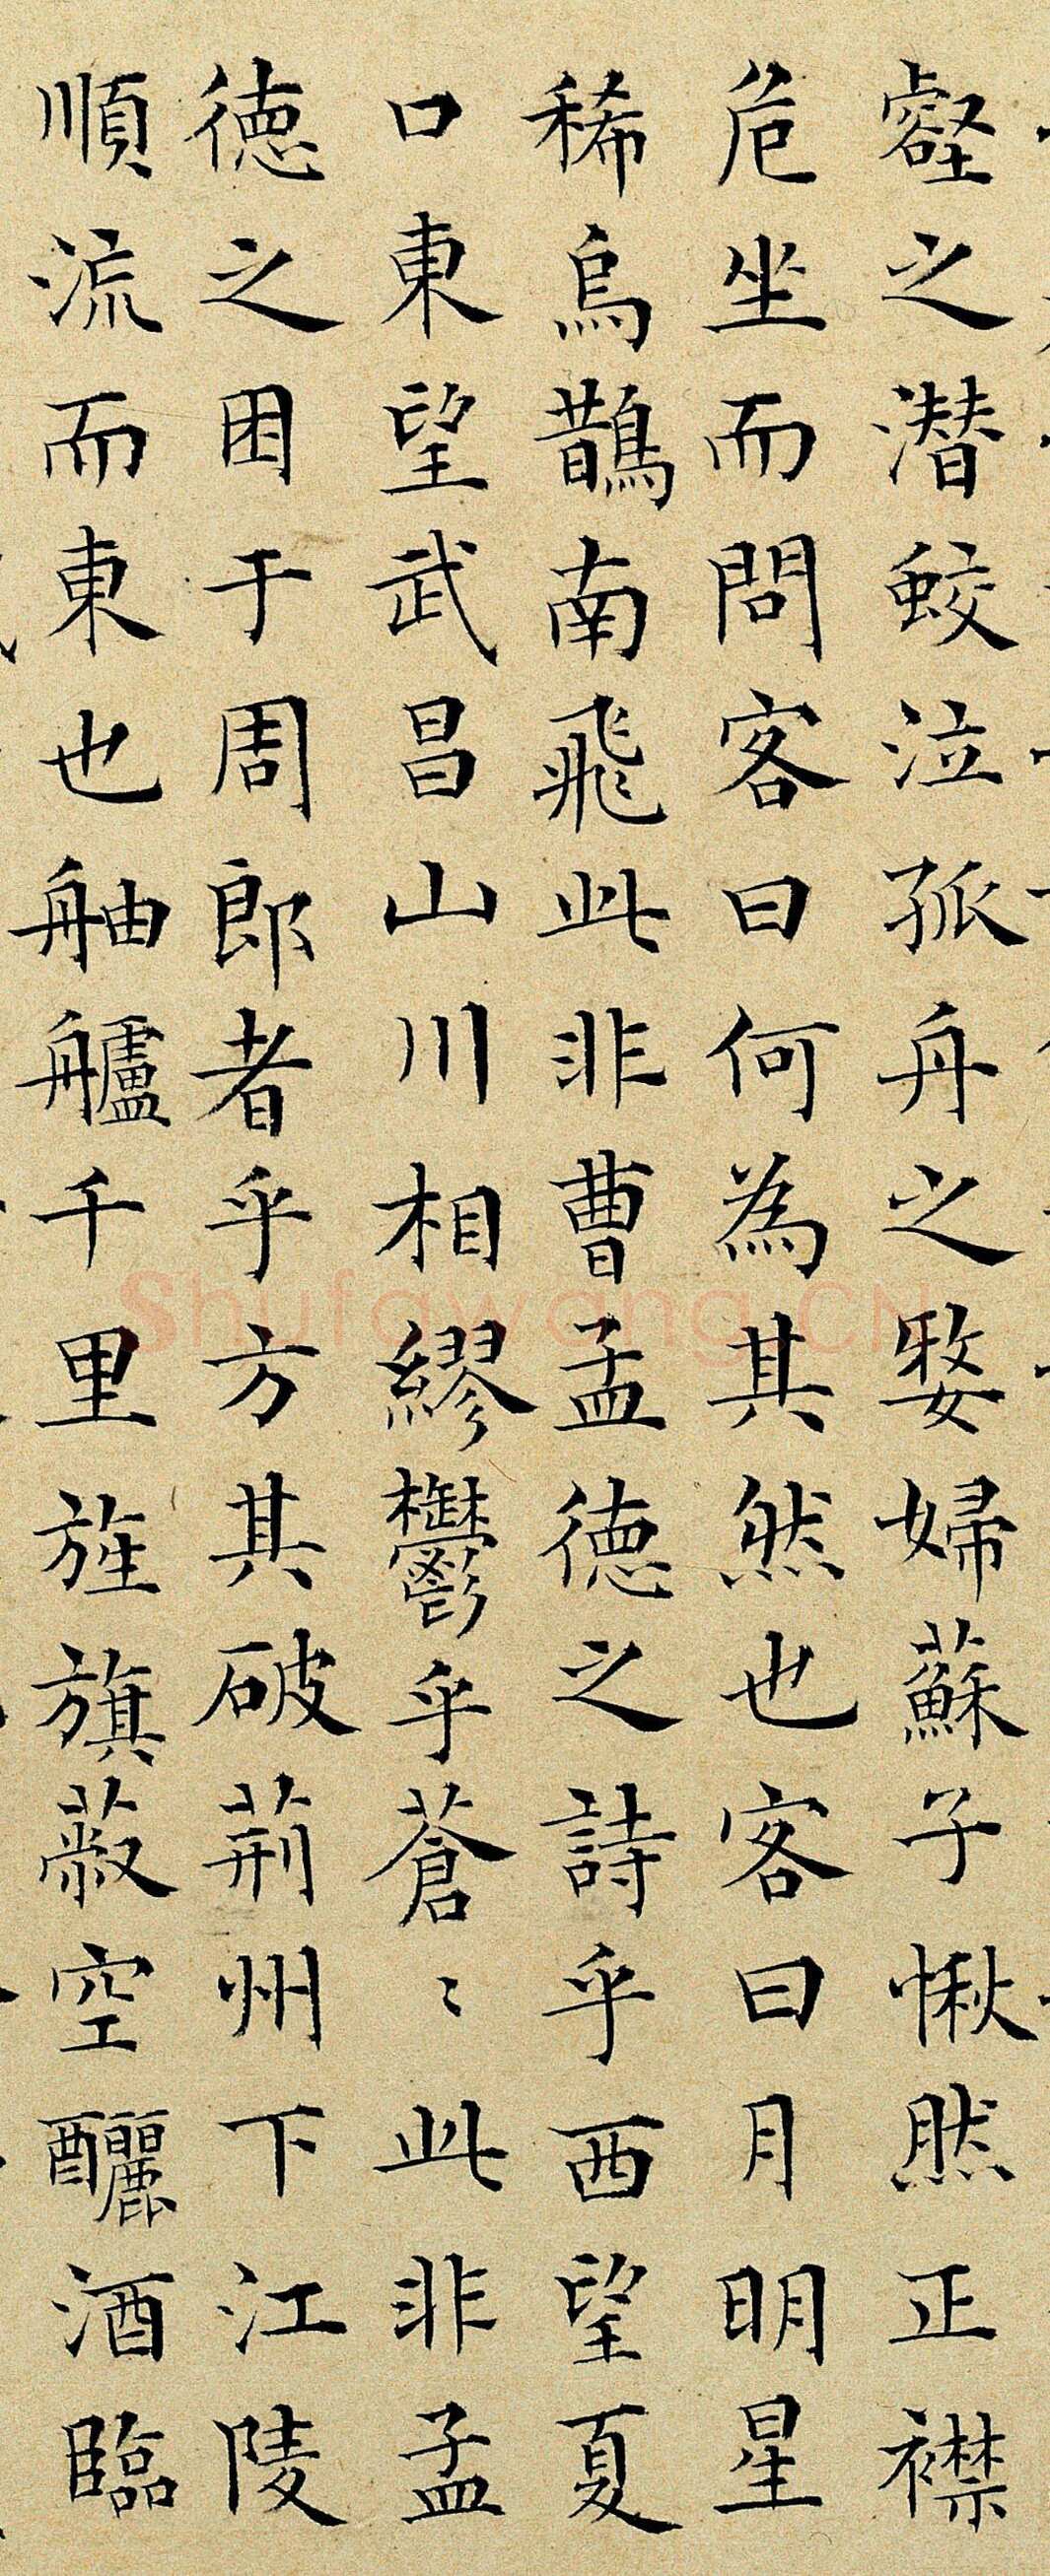 壑之潛蛟泣孤舟之嫠婦蘇子愀然正襟
危坐而問客曰何為其然也客曰月明星
稀烏鵲南飛此非曹孟德之詩乎西望夏
口東望武昌山川相繆鬱乎蒼〻此非孟
德之困于周郎者乎方其破荊州下江陵
順流而東也舳艫千里旌旗蔽空釃酒臨
Shufawang.CN